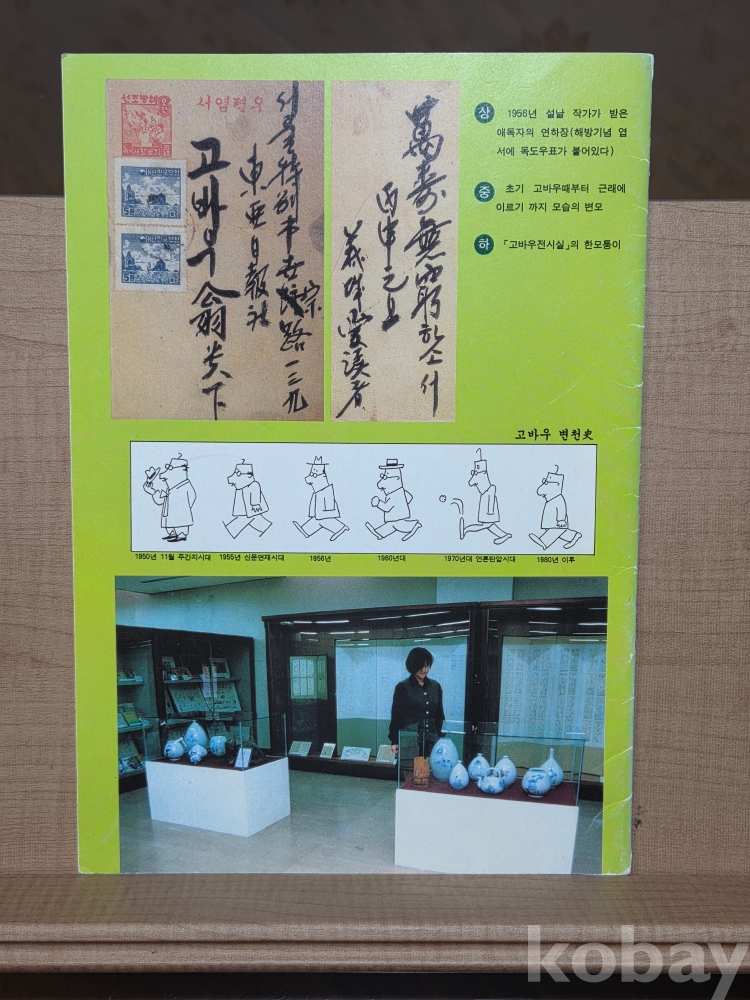 서엽편우
서울特別市 世宗路 一三九
東亜日報社
고바우 翁 貴下
萬壽無窮하소서
丙申元旦
愛讀者
상 1956년 설날 작가가 받은
애독자의 연하장(해방기념 엽
서에 독도우표가 붙어있다)
중 초기 고바우때부터 근래에
이르기 까지 모습의 변모
하 「고바우전시실」의 한모퉁이
고바우 변천史
1950년 11월 주간지시대
1955년 신문연재시대
1956년
1960년대
1970년대 언론탄압시대
1980년 이후
kobay